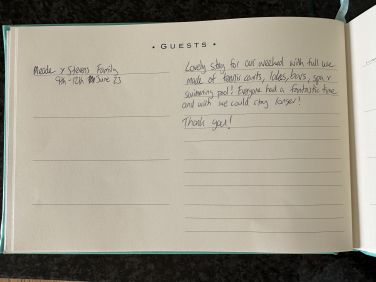 • GUESTS •
Meade & Stevens Family
9th - 12th June 23
Lovely stay for our weekend with full use
made of tennis courts, lakes, bars, spa &
swimming pool! Everyone had a fantastic time
and wish we could stay longer!
Thank you!